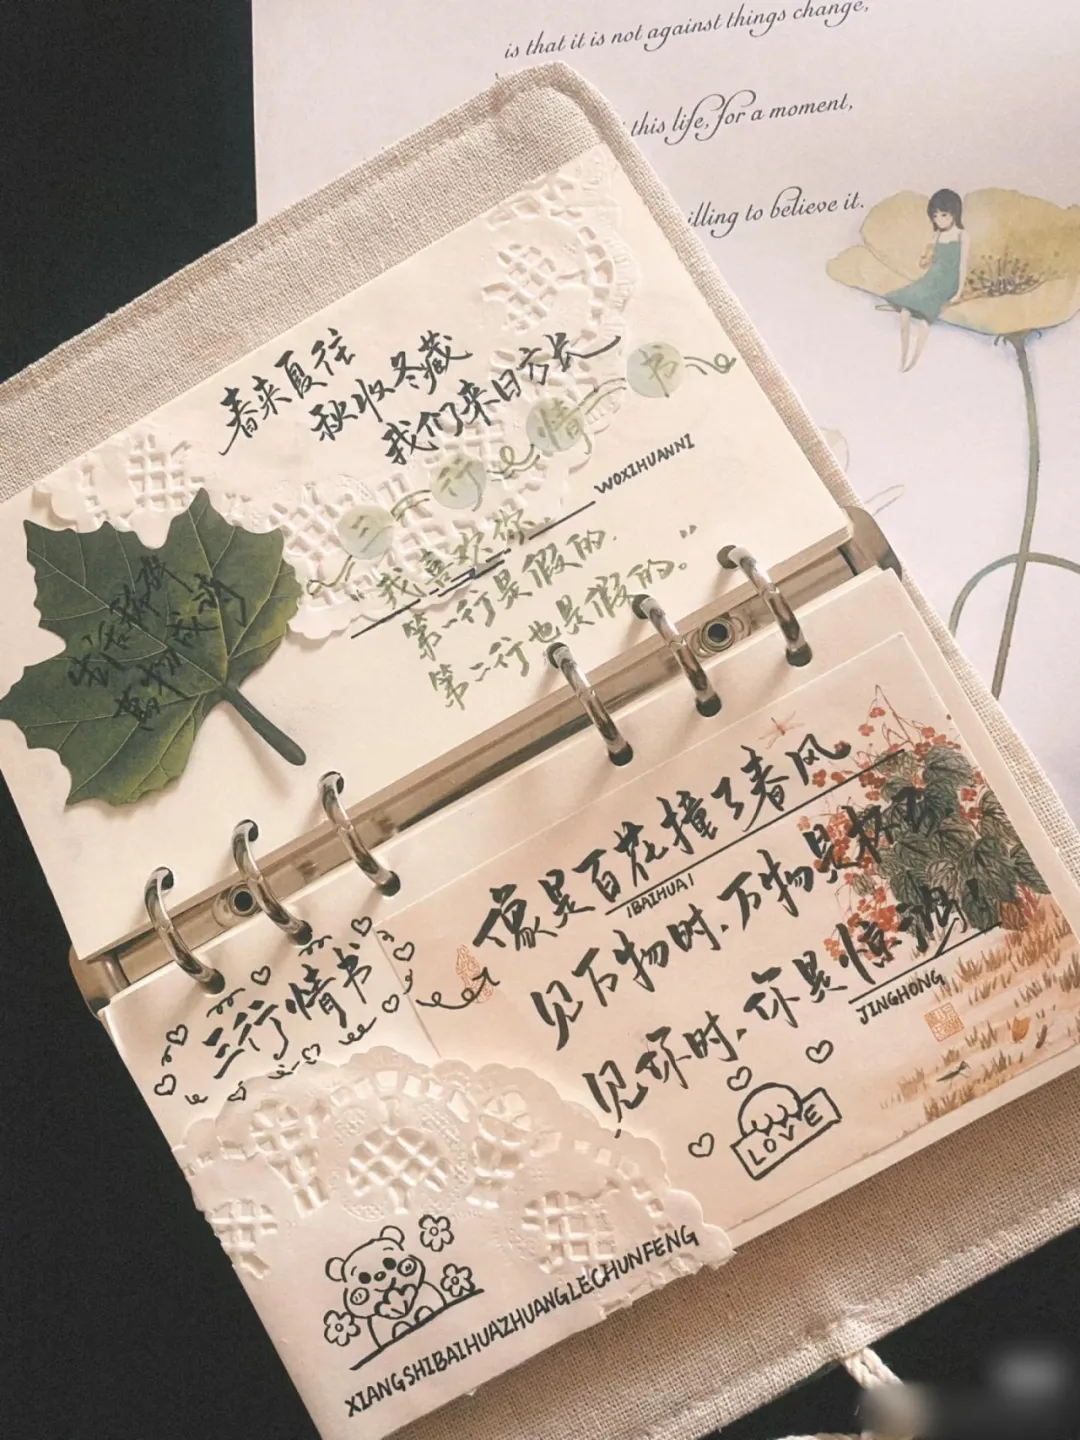 is that it is not against things change,
this life, for a moment,
illing to believe it.
春来夏往
秋收冬藏
我们来日方长
三行情书
WOXIHUANNI
我喜欢你
第一行是假的.
第二行也是假的。”
万物
像是百花撞了春风
IBAIHUAI
见万物时、万物是
见你时、你是惊鸿
JINGHONG
三行情书
LOVE
XIANGSHIBAIHUAZHUANGLECHUNFENG